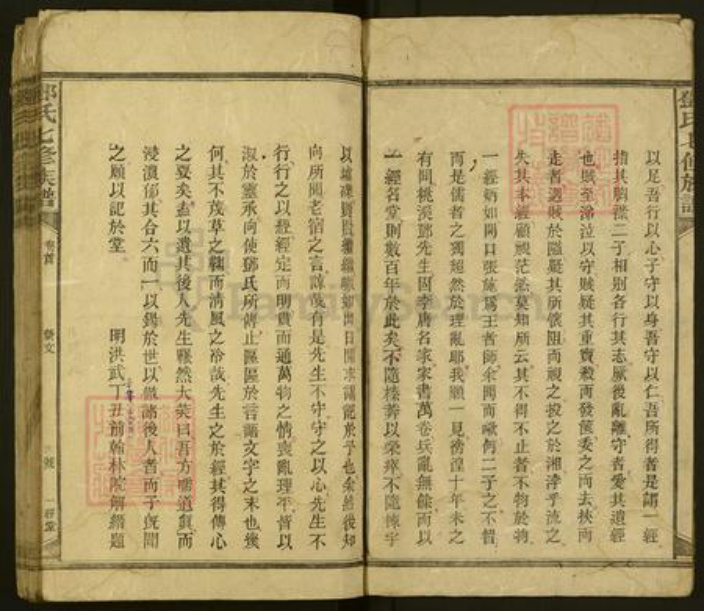 以足吾行以心子守以身吾守以仁吾所得者是謂一經
指其胸灑二子相別各行其志厥後亂離守者愛其遺經
也賊至涕泣以守賊疑其重寶殺而發篋委之而去挾而
走者遇賊於隘疑其所懷阻而視之投之於湘浮乎流之
失其本經顧視茫然莫知所云其不得不止者不物於物
一經炳如開口張施為王者師余聞而歎何二子之不惜
而是儒者之獨超然於理亂耶我願一見徬徨十年未之
有聞桃溪鄧先生固李唐名家家書萬卷兵亂無餘而以
一經名堂則數百年於此矣不隨榛莽以榮瘁不隨棟宇
以 繼繼 如 日 記於予也余然後知
向所聞老宿之言諒哉有是先生不守守之以心先生不
行行之以經經定而明貫而通萬物之情喪亂理平皆以
淑於靈承向使鄧氏所傳止區區於言語文字之末也幾
何其不茂草之鞠而清風之冷哉先生之於經其得傳心
之要矣盍以遺其後人先生囅然大笑曰吾方 道真而
浸濃郁其合六而一以錫於世以 諸後人者而子旣聞
之願以記於堂
明洪武丁丑前翰林院解縉題
鄧氏七修族譜
卷首
藝文
一經堂
鄧氏七修族譜